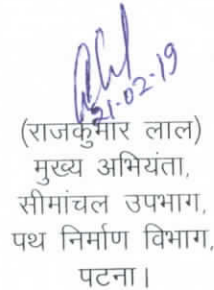 21-02-19
(राजकुमार लाल)
मुख्य अभियंता,
सीमांचल उपभाग,
पथ निर्माण विभाग,
पटना।